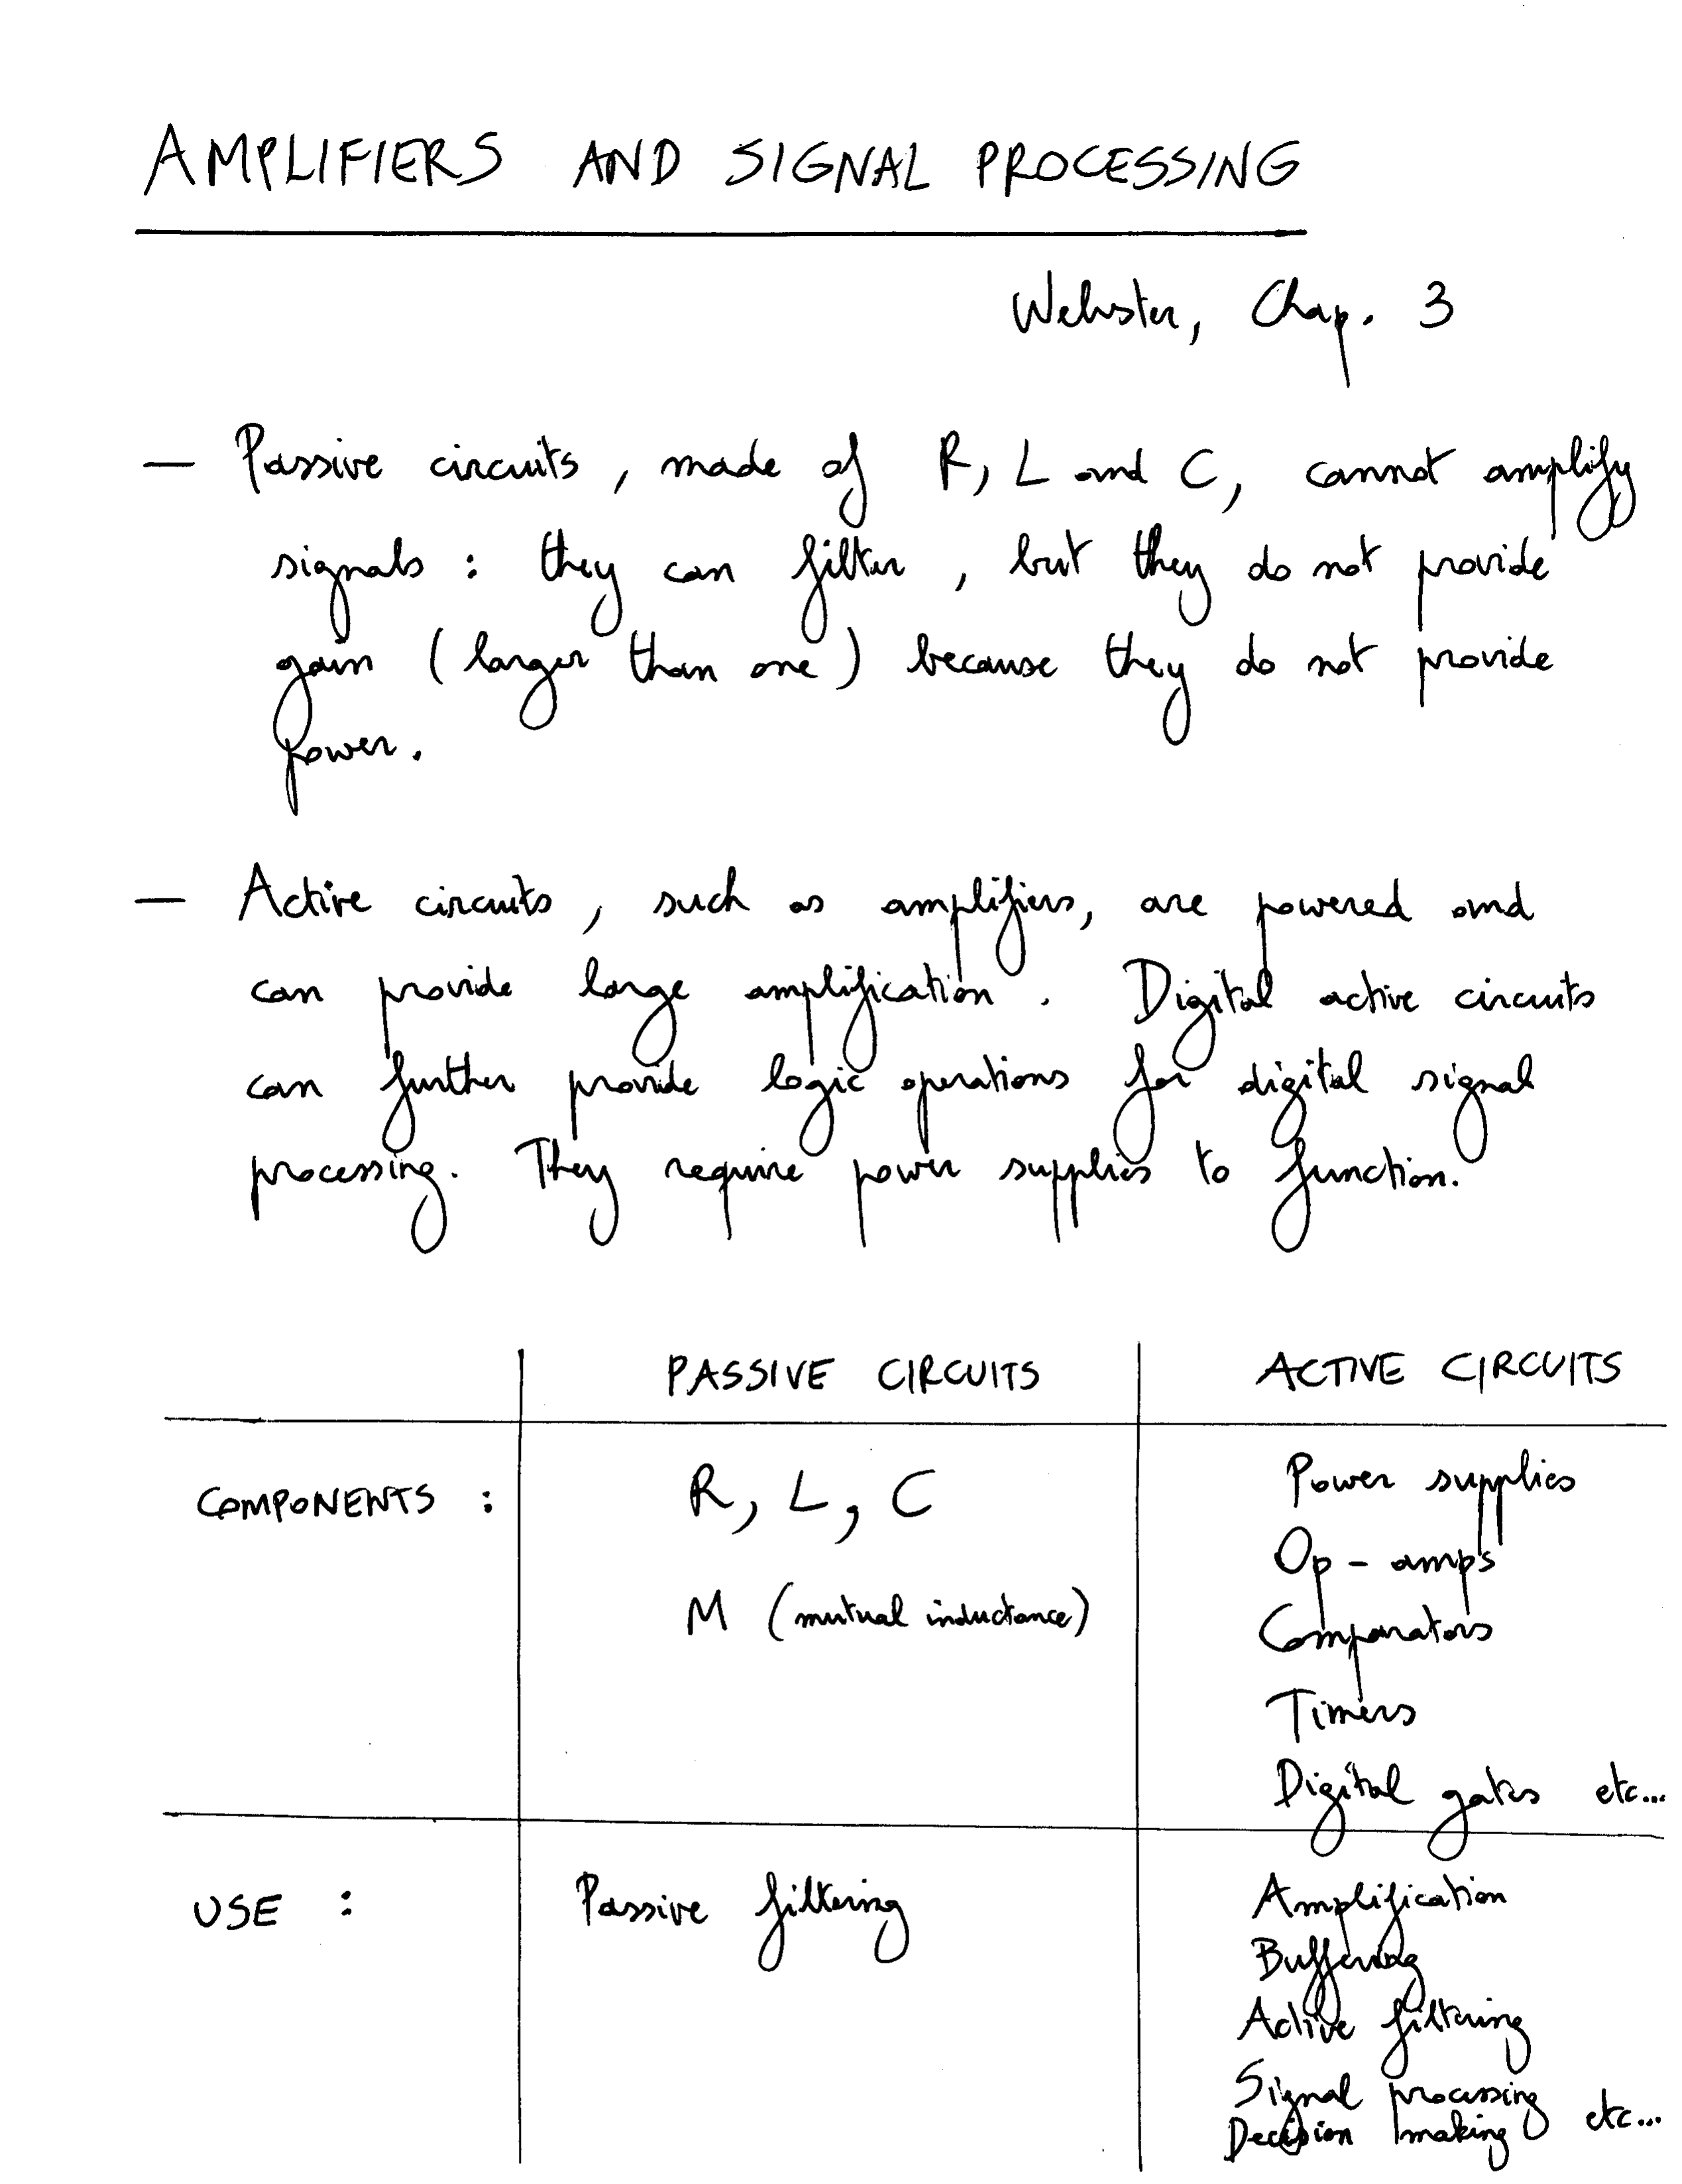 AMPLIFIERS AND SIGNAL PROCESSING
Webster, Chap. 3
— Passive circuits, made of R, L and C, cannot amplify
signals : they can filter, but they do not provide
gain (larger than one) because they do not provide
power.
— Active circuits, such as amplifiers, are powered and
can provide large amplification. Digital active circuits
can further provide logic operations for digital signal
processing. They require power supplies to function.
PASSIVE CIRCUITS ACTIVE CIRCUITS
COMPONENTS : R, L, C Power supplies
Op-amps
M (mutual inductance) Comparators
Timers
Digital gates etc...
USE : Passive filtering Amplification
Buffering
Active filtering
Signal processing
Decision making etc...